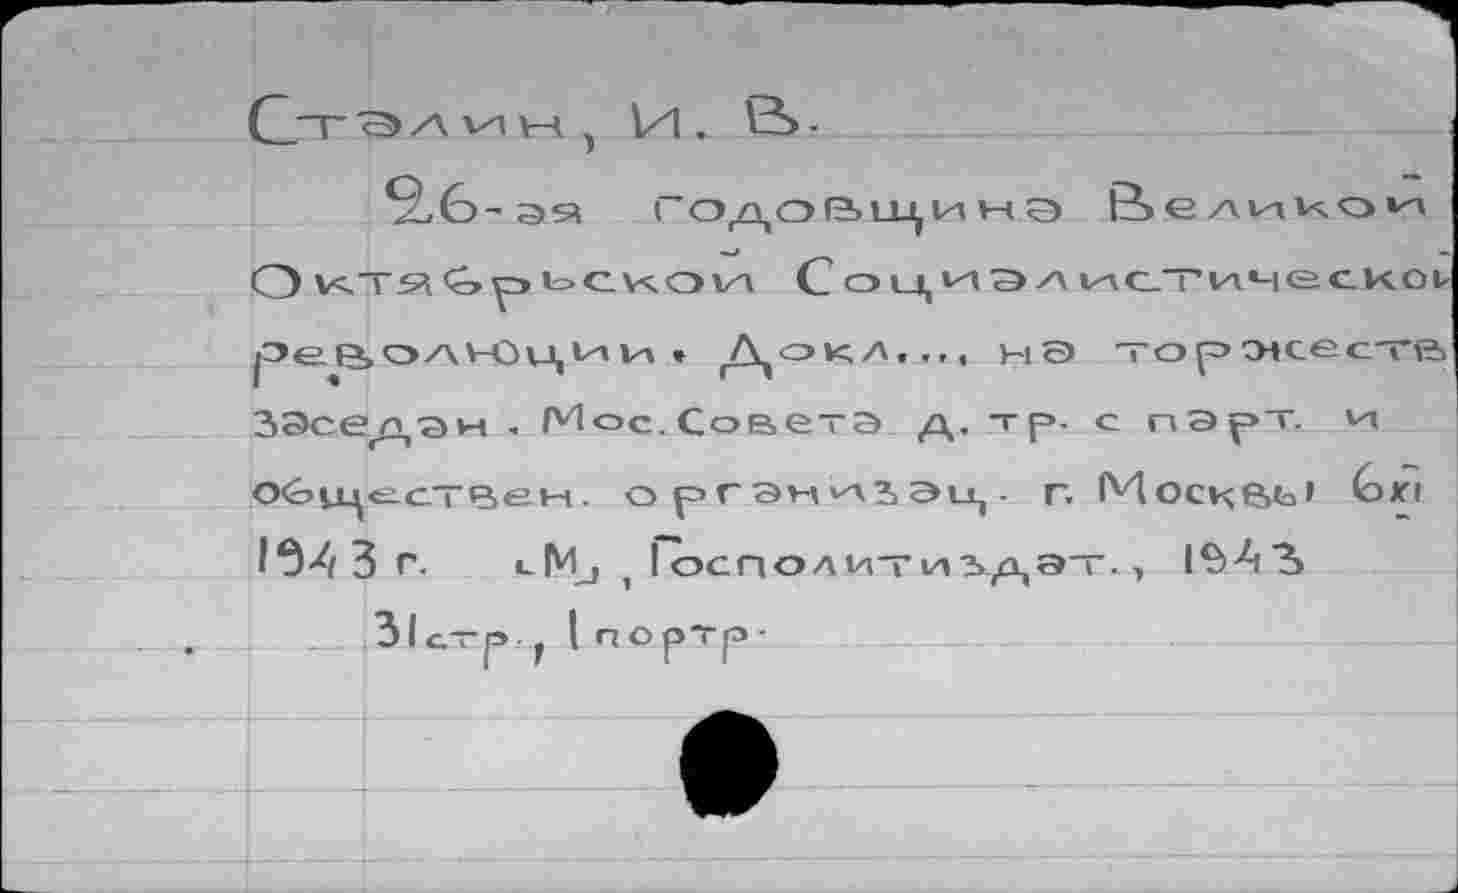 Сталин, И. В.
26-ая годовщина Великой
Октябрьской Социалистической
революции. Докл...., на торжеств
заседан. Мос. Совета д. тр. с парт. и
обществен. организац. г. Москвы 6xi
1943 г. [М], Госполитиздат., 1943
31 стр., 1 портр.